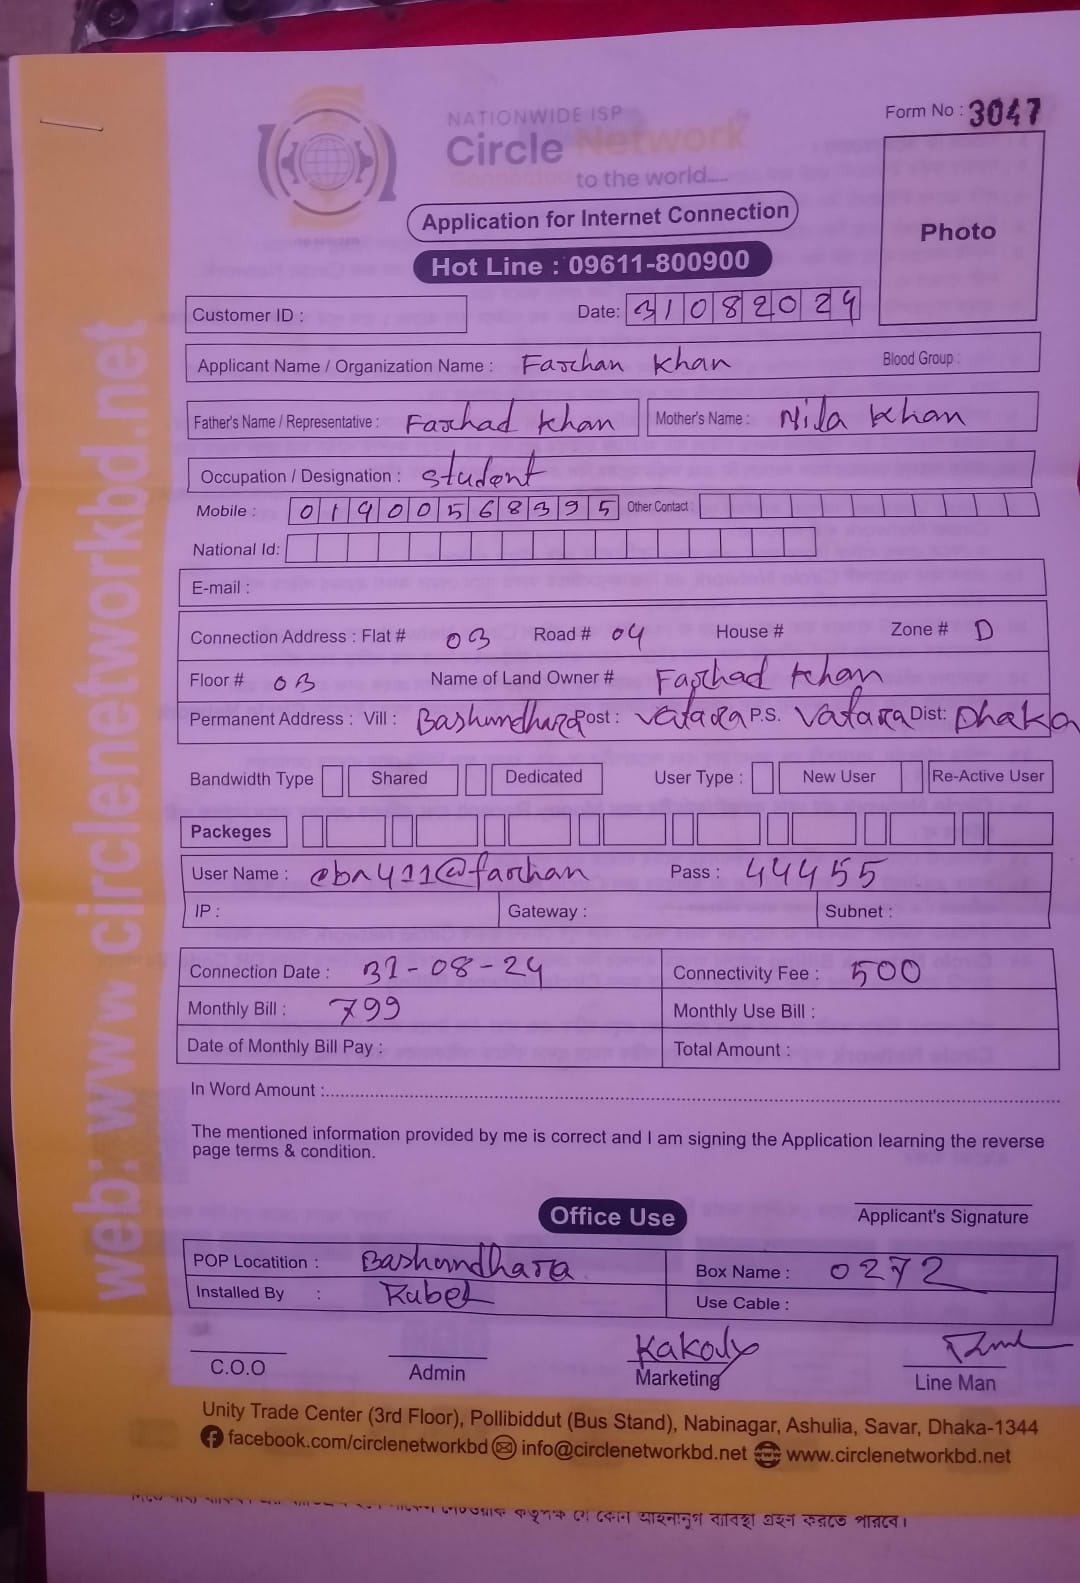 NATIONWIDE ISP
Circle Network
Connected to the world....
Form No : 3047
Application for Internet Connection
Photo
Hot Line : 09611-800900
Customer ID :
Date: 31082024
Applicant Name / Organization Name : Farhan Khan Blood Group :
Father's Name / Representative : Farhad Khan Mother's Name : Nila Khan
Occupation / Designation : Student
Mobile : 01900568395 Other Contact :
National Id:
E-mail :
Connection Address : Flat # 03 Road # 04 House # Zone # D
Floor # 03 Name of Land Owner # Farhad Khan
Permanent Address : Vill : Bashundhara Post : Vatara P.S. Vatara Dist: Dhaka
Bandwidth Type Shared Dedicated User Type : New User Re-Active User
Packeges
User Name : cbn411@farhan Pass : 44455
IP : Gateway : Subnet :
Connection Date : 31-08-24 Connectivity Fee : 500
Monthly Bill : 799 Monthly Use Bill :
Date of Monthly Bill Pay : Total Amount :
In Word Amount :
The mentioned information provided by me is correct and I am signing the Application learning the reverse
page terms & condition.
Office Use
Applicant's Signature
POP Locatition : Bashundhara Box Name : 0272
Installed By : Rubel Use Cable :
Kakoly
C.O.O Admin Marketing Line Man
Unity Trade Center (3rd Floor), Pollibiddut (Bus Stand), Nabinagar, Ashulia, Savar, Dhaka-1344
facebook.com/circlenetworkbd info@circlenetworkbd.net www.circlenetworkbd.net
web: www.circlenetworkbd.net
কর্তৃপক্ষ যে কোন আইনানুগ ব্যবস্থা গ্রহন করতে পারবে।